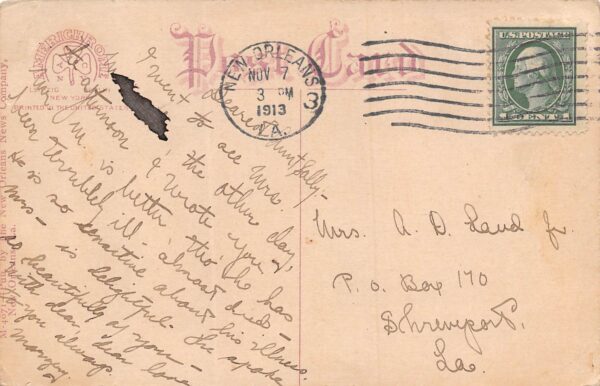 AMERICHROME
Post Card
PRINTED IN THE UNITED STATES
New Orleans News Company,
New Orleans, La.
NEW ORLEANS
NOV 7
3 PM
1913
LA.
3
U.S. POSTAGE
1 CENT 1
Dearest Aunt Sally -
I went to see Mrs.
the other day,
I wrote you
Mr. M. is better tho' he has
been terribly ill - almost died -
He is so sensitive about his illness.
Mrs - is delightful. She spoke
so beautifully of you -
With dear, dear love
you always.
Mrs. A. D. Land Jr.
P. O. Box 170
Shreveport,
La.